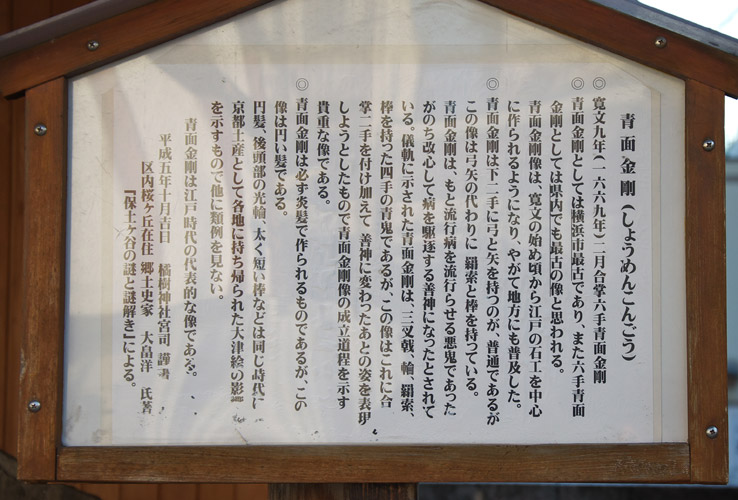 青面金剛(しょうめんこんごう)
◎ 寛文九年(一六六九年)二月合掌六手青面金剛
◎ 青面金剛としては横浜市最古であり、また六手青面
金剛としては県内でも最古の像と思われる。
青面金剛像は、寛文の始め頃から江戸の石工を中心
に作られるようになり、やがて地方にも普及した。
◎ 青面金剛は下二手に弓と矢を持つのが、普通であるが
この像は弓矢の代わりに 羂索と棒を持っている。
青面金剛は、もと流行病を流行らせる悪鬼であった
がのち改心して病を駆逐する善神になったとされて
いる。儀軌に示された青面金剛は、三叉戟、輪、羂索、
棒を持った四手の青鬼であるが、この像はこれに合
掌二手を付け加えて 善神に変わったあとの姿を表現
しようとしたもので青面金剛像の成立道程を示す
貴重な像である。
◎ 青面金剛は必ず炎髪で作られるものであるが、この
像は円い髪である。
円髪、後頭部の光輪、太く短い棒などは同じ時代に
京都土産として各地に持ち帰られた大津絵の影響
を示すもので他に類例を見ない。
青面金剛は江戸時代の代表的な像である。
平成五年十月吉日 橘樹神社宮司 謹書
区内桜ヶ丘在住 郷土史家 大畠洋一氏著
『保土ヶ谷の謎と謎解き』による。